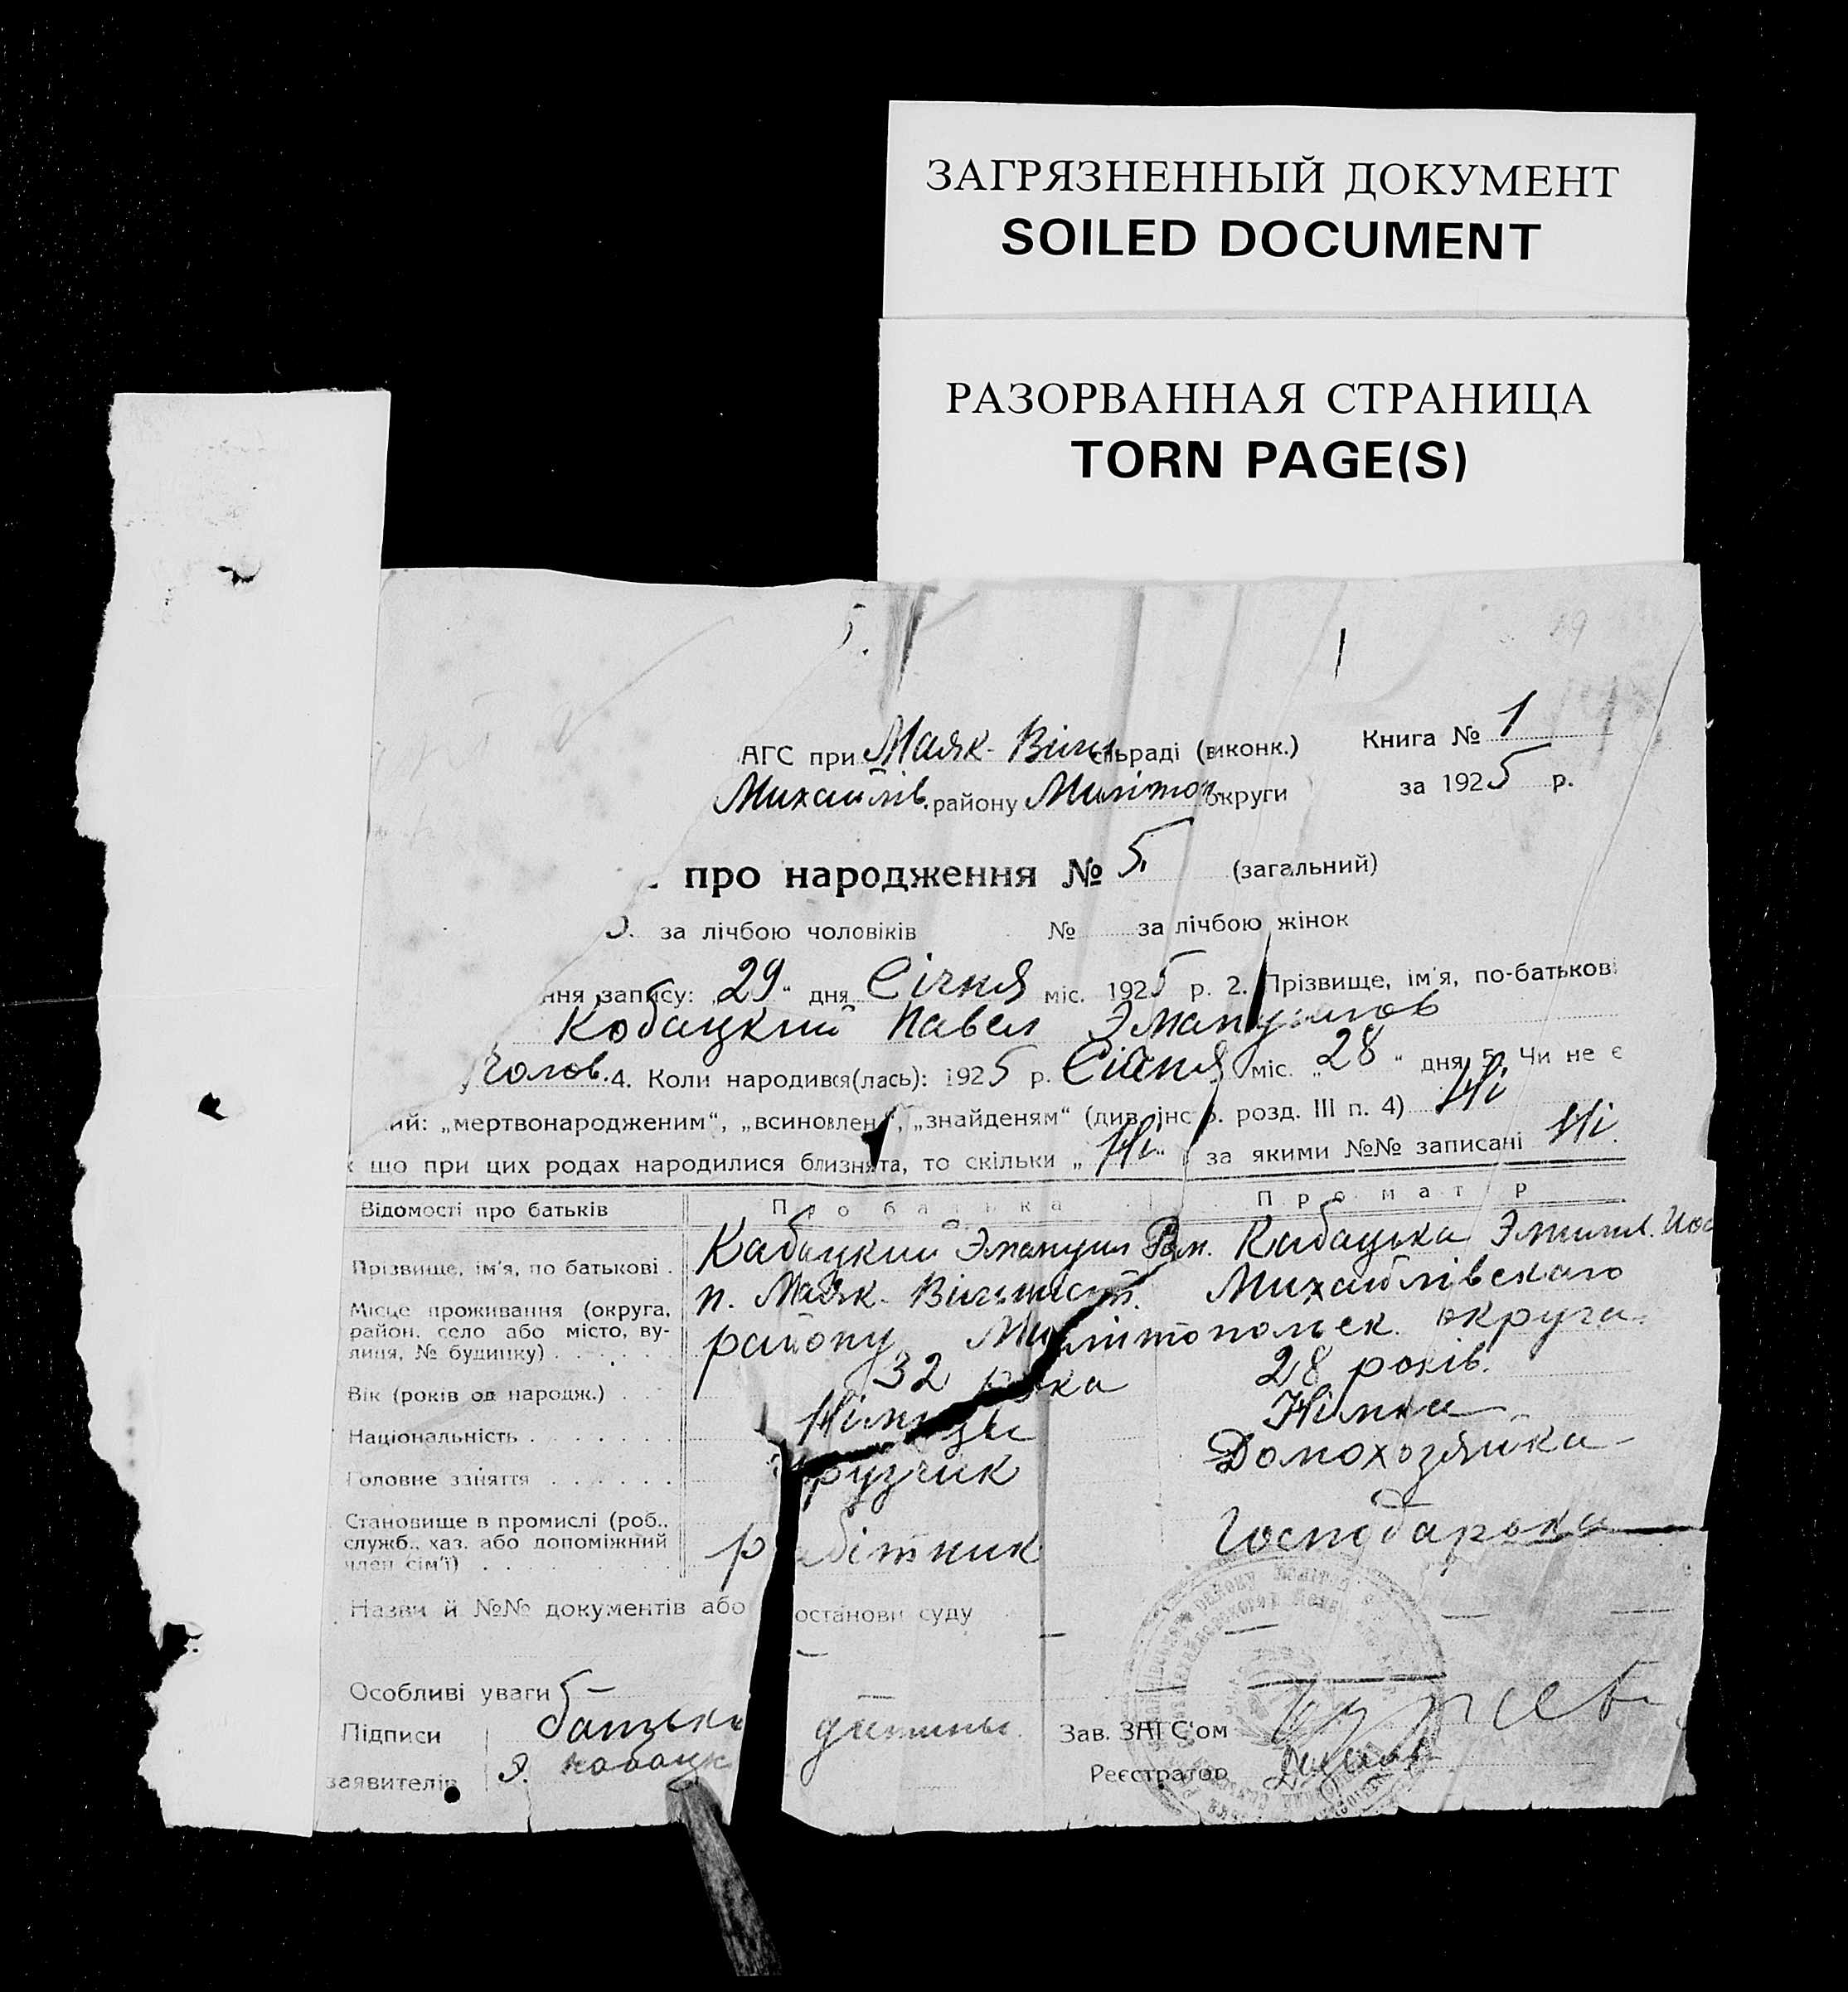 ЗАГРЯЗНЕННЫЙ ДОКУМЕНТ
SOILED DOCUMENT
РАЗОРВАННАЯ СТРАНИЦА
TORN PAGE(S)
АГС при Маяк- Вільн сільраді (виконк.) Книга № 1
Михайлів. району Милітоп. округи за 1925 р.
про народження № 5. (загальний)
за лічбою чоловіків № за лічбою жінок
ння запису: „29“ дня Січня міс. 1925 р. 2. Прізвище, ім'я, по-батькові
Кобацкий Павел Эмануилов
Чолов. 4. Коли народився(лась): 1925 р. Січня міс. „28“ дня 5. Чи не є
ий: „мертвонародженим“, „всиновлен“, „знайденям“ (див. інс р. розд. III п. 4) Ні
що при цих родах народилися близнята, то скільки „Ні“ за якими №№ записані Ні.
Відомості про батьків Про батька Про матір
Прізвище, ім'я, по батькові . Кабацкий Эмануил Кабацька Эмилл.
Місце проживання (округа, п. Маяк- Вільніст. Михайлівскаго
район, село або місто, ву-
лиця, № будинку) району Милітопольск. округа.
Вік (років од народж.) 32 рока 28 років.
Національність Німець Німка
Головне заняття грузчик Домохозяйка
Становище в промислі (роб.,
служб., хаз. або допоміжний робітник Господарока
член сім'ї)
Назви й №№ документів або постанови суду
Особливі уваги
Підписи батько дитины Зав. ЗАГС'ом
заявителів Э. Кобацк Реєстратор